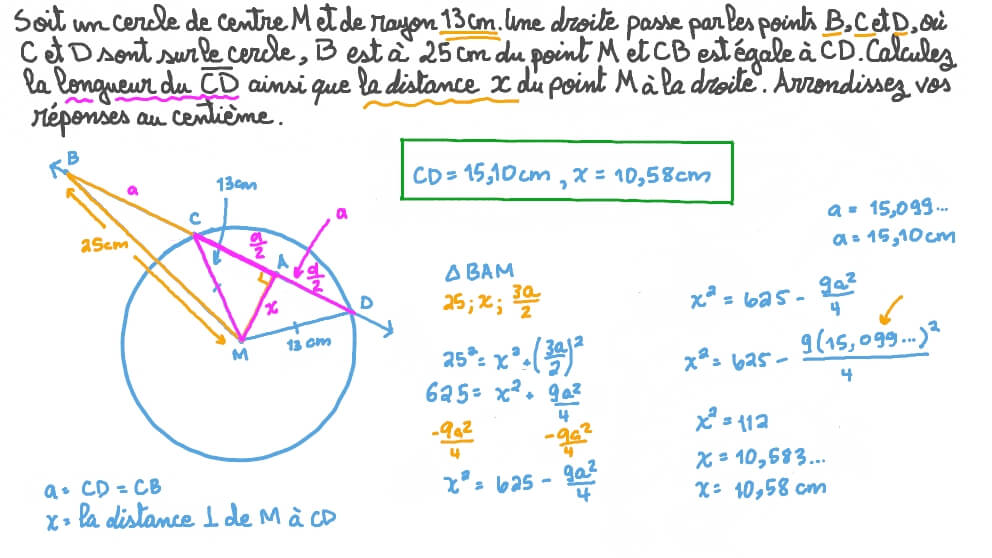 Soit un cercle de centre M et de rayon 13 cm. Une droite passe par les points B, C et D, où
C et D sont sur le cercle, B est à 25 cm du point M et CB est égale à CD. Calculez
la longueur du CD ainsi que la distance x du point M à la droite. Arrondissez vos
réponses au centième.
CD = 15,10 cm , x = 10,58 cm
B
a
13cm
a
C
a/2
25cm
A
d/2
D
x
M
13 cm
a = CD = CB
x = la distance ⊥ de M à CD
△ BAM
25 ; x ; 3a/2
25² = x² + (3a/2)²
625 = x² + 9a²/4
-9a²/4 -9a²/4
x² = 625 - 9a²/4
a = 15,099...
a = 15,10 cm
x² = 625 - 9a²/4
x² = 625 - 9(15,099...)²/4
x² = 112
x = 10,583...
x = 10,58 cm